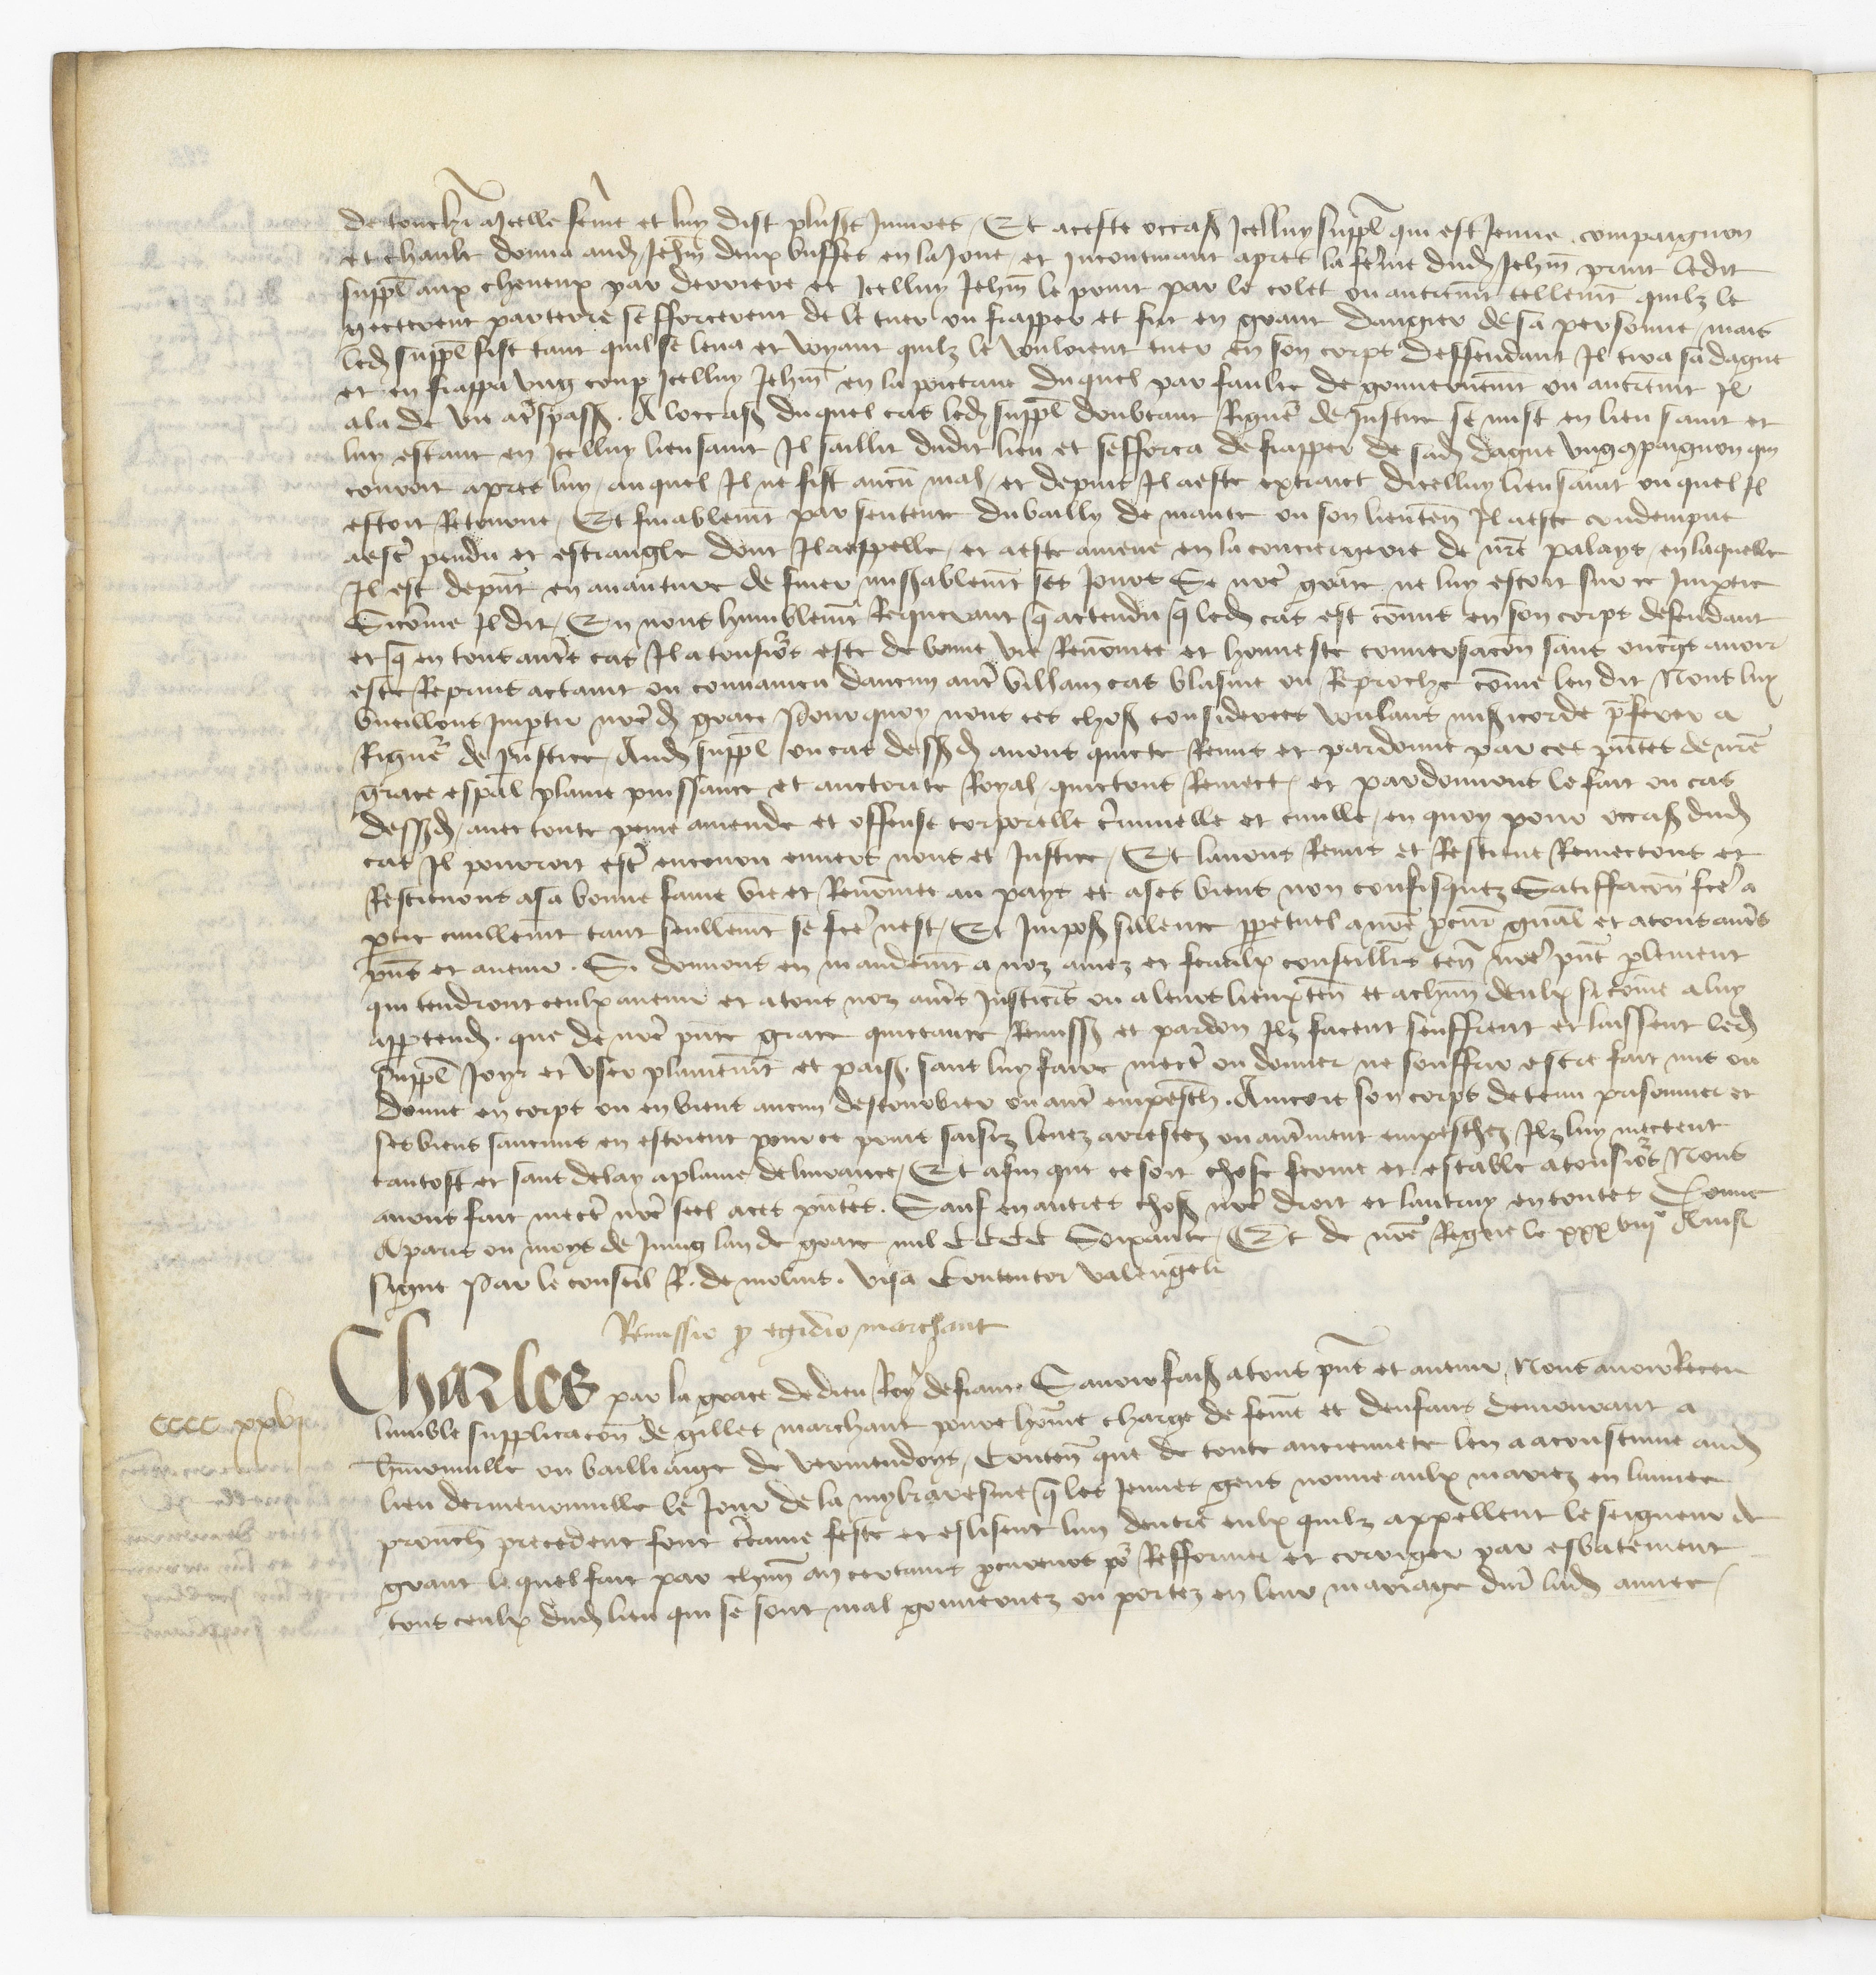 de toucher a icelle fem̄e et luy dist plusrs iniures / Et a ceste occas̄ icelluy suppl̄ qui est jeune compaignon
et chault donna aud Jehan deux buffes en la joue / et incontinant apres la fem̄e dud Jehan print ledit
suppl̄ aux cheueux par derriere et icelluy Jehan le print par le colet ou autremt tellemt quilz le
gecterent par terre sefforcerent de le tuer ou frapper et fut en grant dangier de sa personne / mais
led suppl̄ fist tant quil se leua et voyant quilz le vouloient tuer en son corps deffendant Il tira sa dague
et en frappa vng coup icelluy Jehan en la poictrine duquel par faulte de gouuernemt ou autremt Il
ala de vie a trespass̄ . A loccas̄ duquel cas led suppl̄ doubtant Rigueur de Justice se mist en lieu saint et
luy estant en icelluy lieu saint Il saillit dudit lieu et sefforca de frapper de sad dague vng 9paignon qui
couroit apres luy / auquel Il ne fist aucun mal / et depuis Il a este extraict dicelluy lieu saint ouquel Il
estoit Retourne / Et finablemt par sentence du bailly de mante ou son lieuten Il a este condempne
a estre pendu et estrangle dont Il a appelle / et a este amene en la conciergerie de nr̄e palays / en laquelle
Il est depnt en auanture de finer miserablemt ses jours Se nr̄e grace ne luy estoit sur ce impartie
Sicōme Il dit / En nous humblemt Requerant q̄ actendu q̄ led cas est cōmis en son corps defendant
et q̄ en tous autres cas Il a tousiours este de bonne vie Renōmee et honneste conuersacōn sans oncques auoir
este Reprins actaint ou conuaincu daucun autre villain cas blasme ou Reproche cōme len dit Nous luy
vueillons impartir nr̄ed grace Pourquoy nous ces chos̄ considerees voulans misericorde preferer a
Rigueur de Justice / Aud suppl̄ ou cas dessusd auons quicte Remis et pardonne par ces pñtes de nr̄e
grace espāl plaine puissance et auctorite Royal quictons Remect et pardonnons le fait ou cas
dessusd / auec toute peine amende et offense corporelle criminelle et ciuille / en quoy pour occas̄ dud
cas Il pourroit estre encouru enuers nous et Justice / Et lauons Remis et Restitue Remectons et
Restituons a sa bonne fame vie et Renōmee au pays et a ses biens non confisquez Satiffacōn fcē a
ptie ciuillemt tant seullemt se fcē nest / Et impos̄ sillence ppetuel a nr̄e procur gnāl et a tous autres
pñs et auenir . Si donnons en mandemt a noz amez et feaulx conseilliers ten nr̄e pñt plement
qui tendront ceulx auenir et a tous noz autres Justiciers ou a leurs lieuxten et a chūn deulx sicōme a luy
apptiend. que de nr̄e pñte grace quictance Remiss̄ et pardon Ilz facent seuffrent et laissent led
suppl̄ Joyr et vser plainemt et paisi. sans luy faire mectre ou donner ne souffrir estre fait mis ou
donne en corps ou en biens aucun destourbier ou autre empesch . Aincois son corps detenu prisonnier et
ses biens saucuns en estoient pour ce prins saisiz leuez arrestez ou autrement empeschez Ilz luy mectent
tantost et sans delay a plaine deliurance / Et afin que ce soit chose ferme et estable a tousiours Nous
auons fait mectre nr̄e seel a ces pñtes . Sauf en autres chos̄ nr̄e droit et lautruy en toutes Donne
A paris ou moys de Juing lan de grace mil CCCC Soixante / Et de nr̄e Regne le xxxviije Ainsi
signe Par le conseil R . de molins . Visa Contentor Valengeli
Remissio p egidio marchant
Charles par la grace de dieu Roy de france Sauoir fais̄ a tous pñs et auenir Nous auoir Receu
CCCC xxvj
lumble supplicacōn de gillet marchant poure hōme charge de femē et denfans demourant a
hermonuille ou bailliaige de vermendoys / Conten que de toute anciennete len a acoustume aud
lieu dermenonuille le jour de la my karesme q̄ les jeunes gens nouueaulx mariez en lannee
prouch precedent font certaine feste et eslisent lun dentre eulx quilz appellent le seigneur de
grant lequel fait par chūn an certains procureurs por Refformer et corriger par esbatement
tous ceulx dud lieu qui se sont mal gouuernez ou portez en leur mariage durt lad annee /